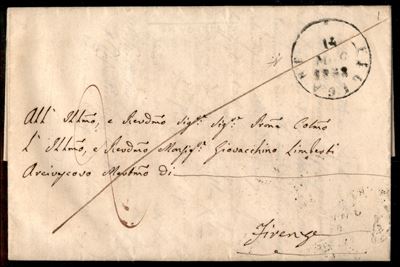 1
FILIGARE
14
1858
All' Illmo, e Revdmo Sigr. Sigr. Prone Colmo
L' Illmo, e Revdmo Monsigr. Giovacchino Limberti
Arcivescovo Meritmo di
Firenze